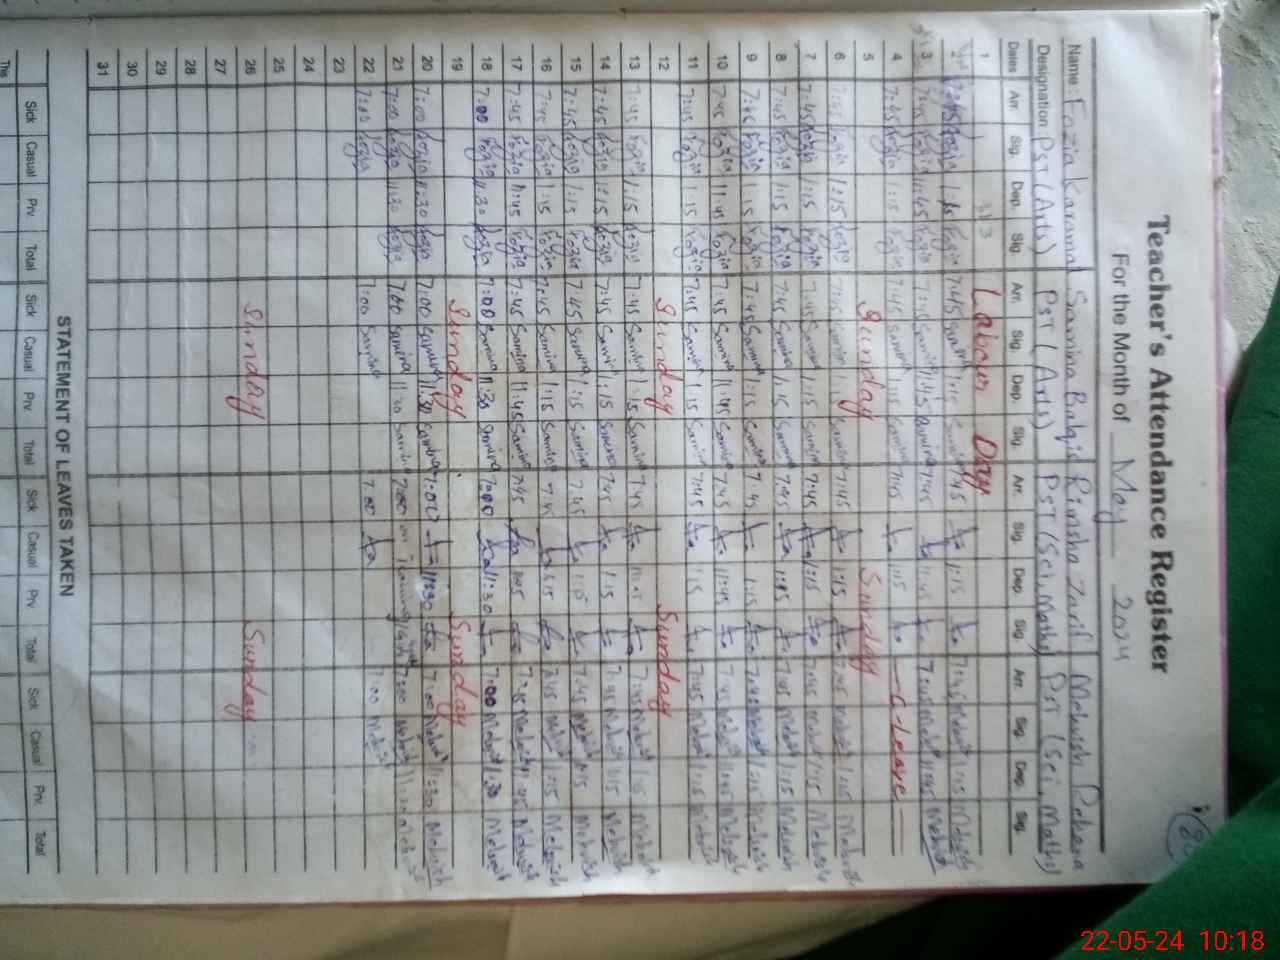 Teacher's Attendance Register
For the Month of May 2024
Name: Fozia Karamat Samina Balqis Rimsha Zarif Mehwish Rehana
Designation: PST (Arts) PST (Arts) PST (Sci, Maths) PST (Sci, Maths)
Dates Arr. Sig. Dep. Sig. Arr. Sig. Dep. Sig. Arr. Sig. Dep. Sig. Arr. Sig. Dep. Sig.
1 Labour Day
2 Fozia Fozia 7:45 Samina 1:15 Samina 7:45 1:15 7:45 Mehwish 1:15 Mehwish
3 7:45 Fozia 11:45 Fozia 7:45 Samina 11:45 Samina 7:45 11:45 7:45 Mehwish 11:45 Mehwish
4 7:45 Fozia 1:15 Fozia 7:45 Samina 1:15 Samina 7:45 1:15 C-Leave
5 Sunday Sunday
6 7:45 Fozia 1:15 Fozia 7:45 Samina 1:15 Samina 7:45 1:15 7:45 Mehwish 1:15 Mehwish
7 7:45 Fozia 1:15 Fozia 7:45 Samina 1:15 Samina 7:45 1:15 7:45 Mehwish 1:15 Mehwish
8 7:45 Fozia 1:15 Fozia 7:45 Samina 1:15 Samina 7:45 1:15 7:45 Mehwish 1:15 Mehwish
9 7:45 Fozia 1:15 Fozia 7:45 Samina 1:15 Samina 7:45 1:15 7:45 Mehwish 1:15 Mehwish
10 7:45 Fozia 11:45 Fozia 7:45 Samina 11:45 Samina 7:45 11:45 7:45 Mehwish 11:45 Mehwish
11 7:45 Fozia 1:15 Fozia 7:45 Samina 1:15 Samina 7:45 1:15 7:45 Mehwish 1:15 Mehwish
12 Sunday Sunday
13 7:45 Fozia 1:15 Fozia 7:45 Samina 1:15 Samina 7:45 7:45 Mehwish 1:15 Mehwish
14 7:45 Fozia 1:15 Fozia 7:45 Samina 1:15 Samina 7:45 1:15 7:45 Mehwish 1:15 Mehwish
15 7:45 Fozia 1:15 Fozia 7:45 Samina 1:15 Samina 7:45 1:15 7:45 Mehwish 1:15 Mehwish
16 7:45 Fozia 1:15 Fozia 7:45 Samina 1:15 Samina 7:45 1:15 7:45 Mehwish 1:15 Mehwish
17 7:45 Fozia 11:45 Fozia 7:45 Samina 11:45 Samina 7:45 11:45 Mehwish 11:45 Mehwish
18 7:00 Fozia 11:30 Fozia 7:00 Samina 11:30 Samina 7:00 11:30 7:00 Mehwish Mehwish
19 Sunday Sunday
20 7:00 Fozia 11:30 Fozia 7:00 Samina 11:30 Samina 7:00 11:30 7:00 Mehwish 11:30 Mehwish
21 7:00 Fozia 11:30 Fozia 7:00 Samina 11:30 Samina 7:00 on 7:00 Mehwish 11:30 Mehwish
22 7:00 Fozia 7:00 Samina 7:00 7:00 Mehwish
23
24
25
26 Sunday Sunday
27
28
29
30
31
STATEMENT OF LEAVES TAKEN
Sick Casual Prv. Total Sick Casual Prv. Total Sick Casual Prv. Total Sick Casual Prv. Total
This
22-05-24 10:18